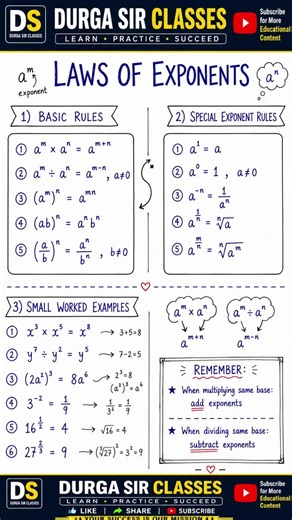 DS
DURGA SIR CLASSES
DURGA SIR CLASSES
LEARN • PRACTICE • SUCCEED
SUBSCRIBE
for More
Educational
Content
aᵐ
exponent
LAWS OF EXPONENTS
aⁿ
1) BASIC RULES
① aᵐ × aⁿ = aᵐ⁺ⁿ
② aᵐ ÷ aⁿ = aᵐ⁻ⁿ, a≠0
③ (aᵐ)ⁿ = aᵐⁿ
④ (ab)ⁿ = aⁿbⁿ
⑤ (a/b)ⁿ = aⁿ/bⁿ, b≠0
2) SPECIAL EXPONENT RULES
① a¹ = a
② a⁰ = 1, a≠0
③ a⁻ⁿ = 1/aⁿ
④ a^(1/n) = ⁿ√a
⑤ a^(m/n) = ⁿ√aᵐ
3) SMALL WORKED EXAMPLES
① x³ × x⁵ = x⁸ → 3+5=8
② y⁷ ÷ y² = y⁵ → 7-2=5
③ (2a²)³ = 8a⁶ → 2³=8
(a²)³=a⁶
④ 3⁻² = 1/9 → 1/3² = 1/9
⑤ 16^(1/2) = 4 → √16 = 4
⑥ 27^(2/3) = 9 → (³√27)² = 3² = 9
aᵐ × aⁿ
aᵐ⁺ⁿ
aᵐ ÷ aⁿ
aᵐ⁻ⁿ
REMEMBER:
★ When multiplying same base:
add exponents
★ When dividing same base:
subtract exponents
DS
DURGA SIR CLASSES
DURGA SIR CLASSES
LEARN • PRACTICE • SUCCEED
LIKE
SHARE
SUBSCRIBE
Subscribe
for More
Educational
Content